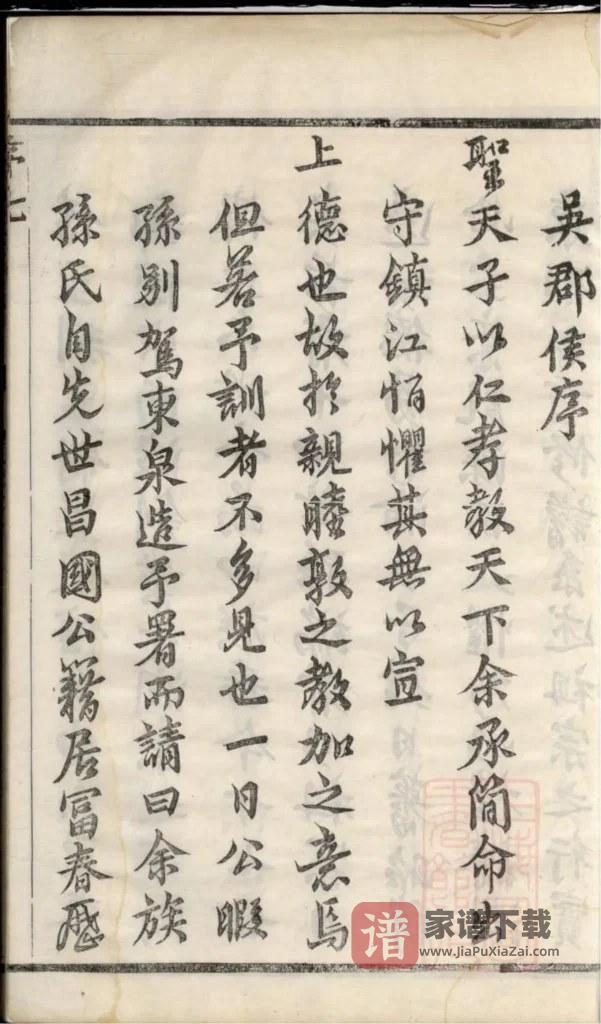 吳郡侯序
聖天子以仁孝教天下余承簡命出
守鎮江恒懼其無以宣
上德也故於親睦敦之教加之意焉
但若予訓者不多見也一日公暇
孫別駕東泉造予署而請曰余族
孫氏自先世昌國公籍居富春歷
序七
谱
家谱下载
www.JiaPuXiaZai.com